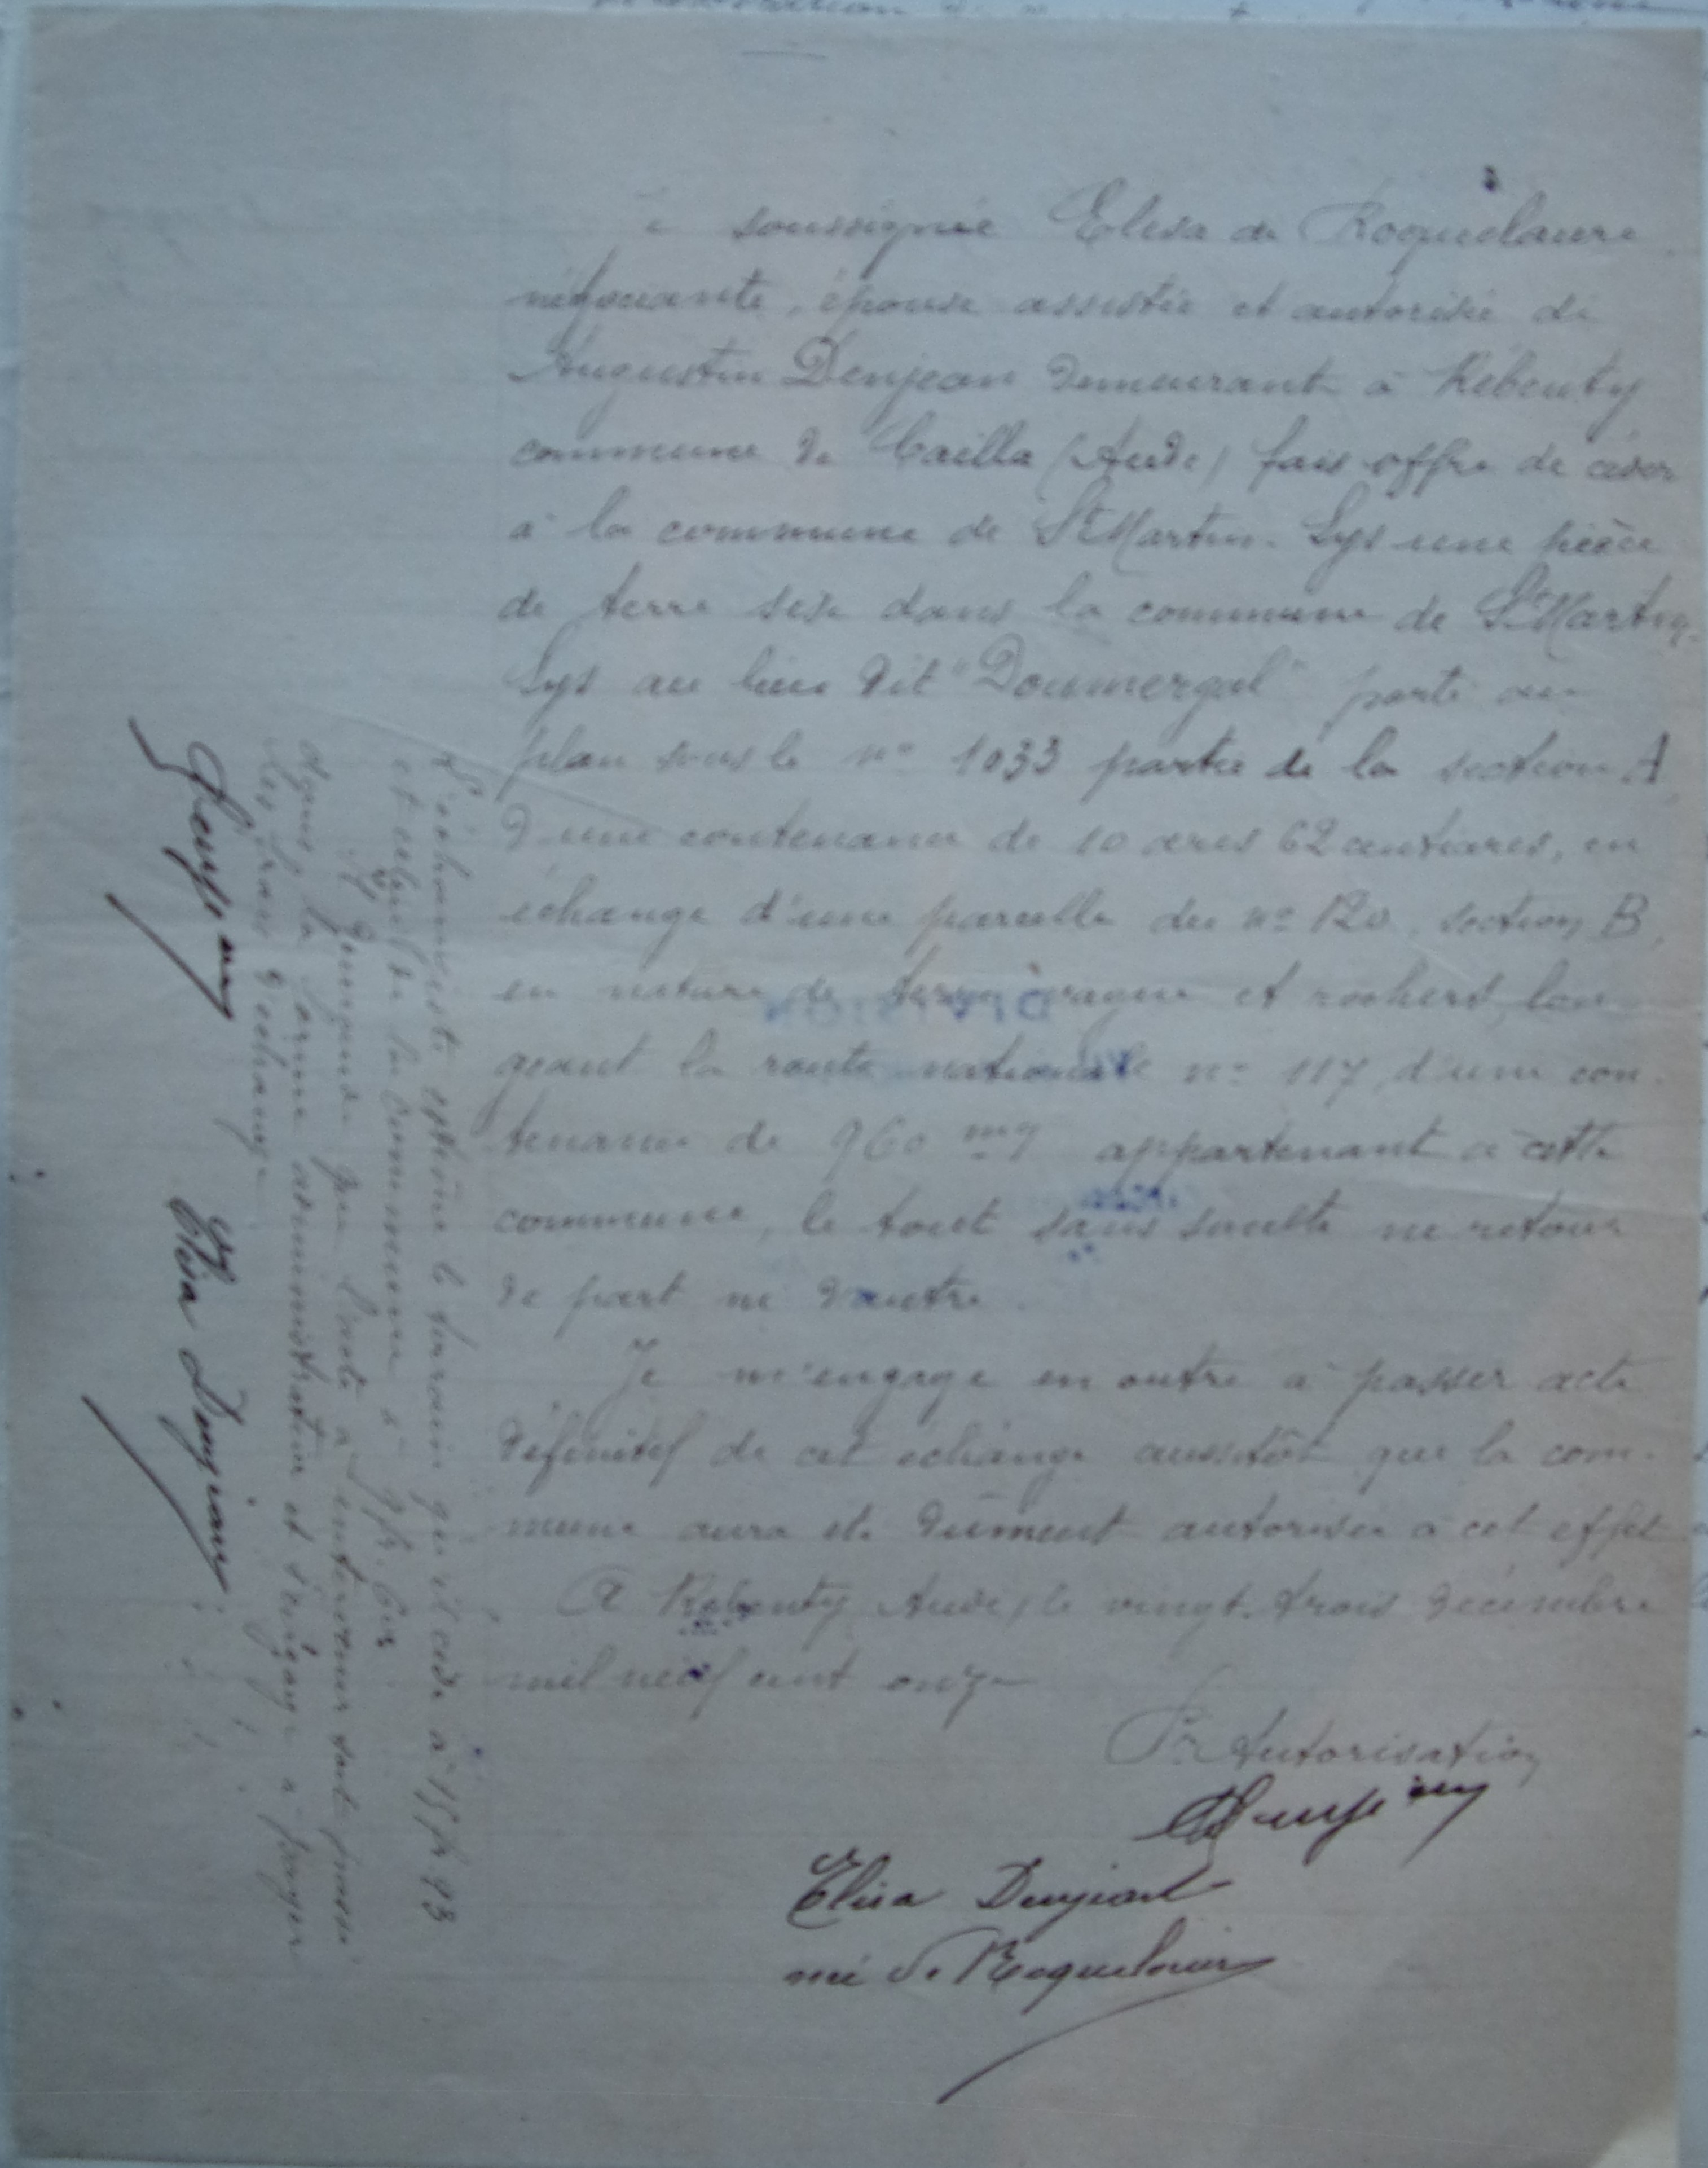 soussignée Elisa de Roquelaure
négociante, épouse assistée et autorisée de
Augustin Denjean demeurant à Rébenty
commune de Cailla (Aude) fais offre de céder
à la commune de St Martin-Lys une pièce
de terre sise dans la commune de St Martin-
Lys au lieu dit "Doumergal" porté au
plan sous le n° 1033 partie de la section A
d'une contenance de 10 ares 62 centiares, en
échange d'une parcelle du n° 120, section B,
en nature de terre vague et rochers, lon-
geant la route nationale n° 117, d'une con-
tenance de 960 mq appartenant à cette
commune, le tout sans soulte ni retour
de part ni d'autre.
Je m'engage en outre à passer acte
définitif de cet échange aussitôt que la com-
mune aura été dûment autorisée à cet effet
A Rebenty Aude, le vingt-trois décembre
mil neuf cent onze
Pr Autorisation
ADenjean
Elisa Denjean
née de Roquelaure
L'échangiste estime le terrain qu'il cède à 15 fr 93
et celui de la commune à 9 fr. 60
Il demande que l'acte à intervenir soit passé
dans la forme administrative et s'engage à payer
les frais d'échange
ADenjean Elisa Denjean